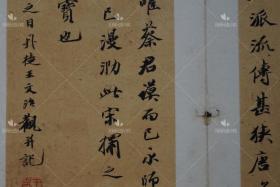 派流傳甚狹唐
唯蔡君謨而已永師
已漫泐此宋搨之
寶也
之日丹徒王文治觀并記